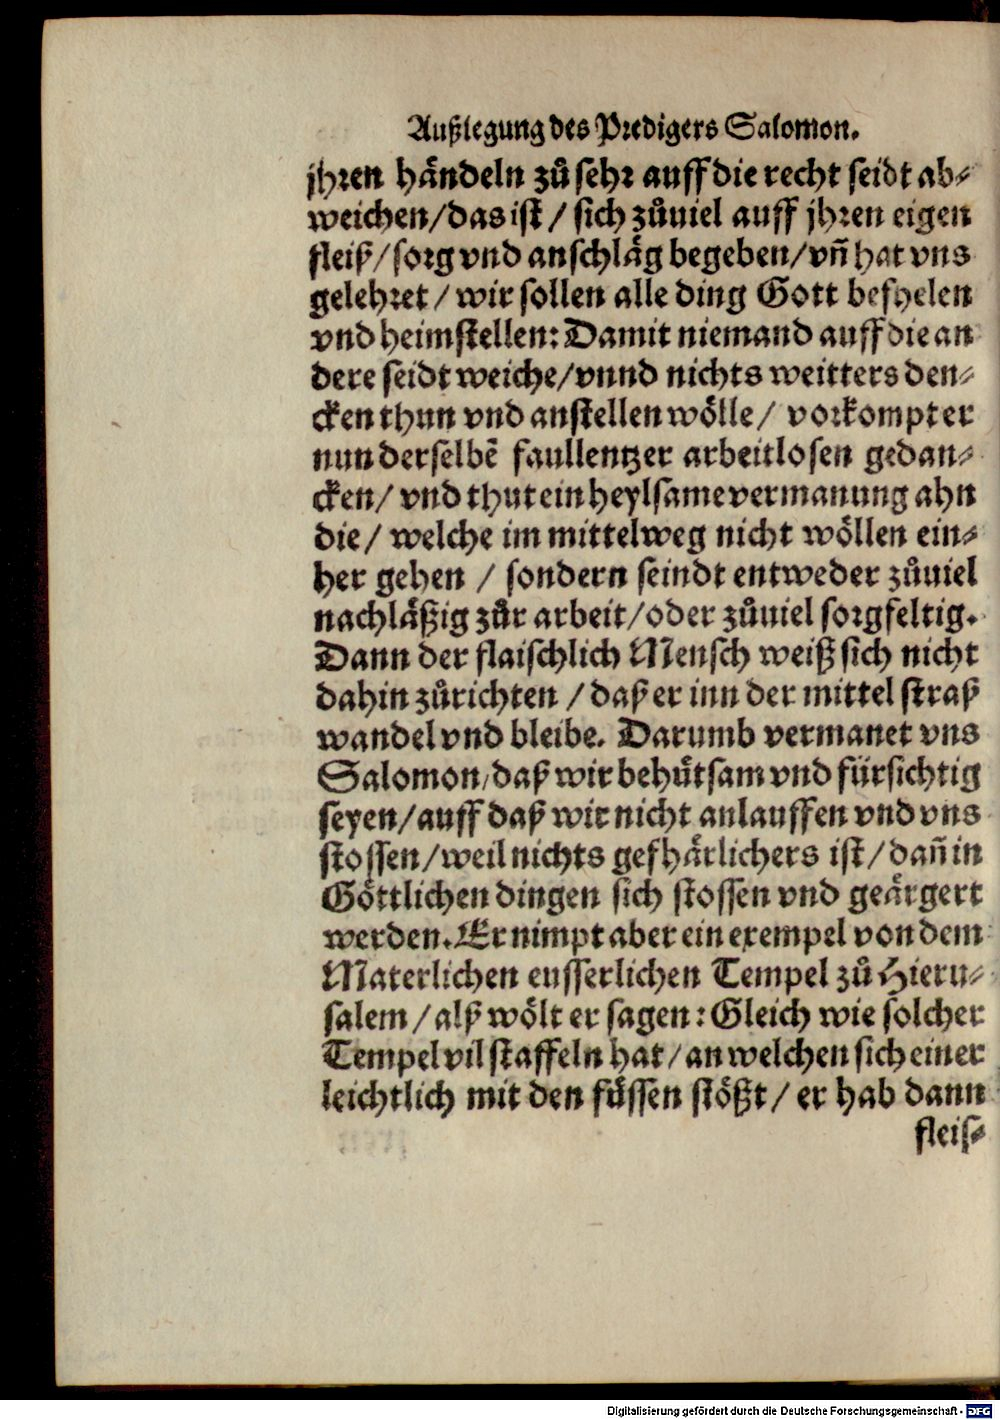 Außlegung des Predigers Salomon.
jhren händeln zů sehr auff die recht seidt ab⸗
weichen/das ist / sich zůuiel auff jhren eigen
fleiß/sorg vnd anschläg begeben/vñ hat vns
gelehret / wir sollen alle ding Gott befhelen
vnd heimstellen: Damit niemand auff die an
dere seidt weiche/vnnd nichts weitters den⸗
cken thun vnd anstellen wölle/ vorkompt er
nun derselbē faullentzer arbeitlosen gedan⸗
cken/ vnd thut ein heylsame vermanung ahn
die/ welche im mittelweg nicht wöllen ein⸗
her gehen / sondern seindt entweder zůuiel
nachläßig zůr arbeit/oder zůuiel sorgfeltig.
Dann der flaischlich Mensch weiß sich nicht
dahin zůrichten /daß er inn der mittel straß
wandel vnd bleibe. Darumb vermanet vns
Salomon/daß wir behůtsam vnd fürsichtig
seyen/auff daß wir nicht anlauffen vnd vns
stossen/weil nichts gefhärlichers ist/dañ in
Göttlichen dingen sich stossen vnd geärgert
werden. Er nimpt aber ein exempel von dem
Materlichen eusserlichen Tempel zů Hieru⸗
salem/alß wölt er sagen: Gleich wie solcher
Tempel vil staffeln hat/an welchen sich einer
leichtlich mit den füssen stößt/ er hab dann
fleis⸗
Digitalisierung gefördert durch die Deutsche Forschungsgemeinschaft - DFG